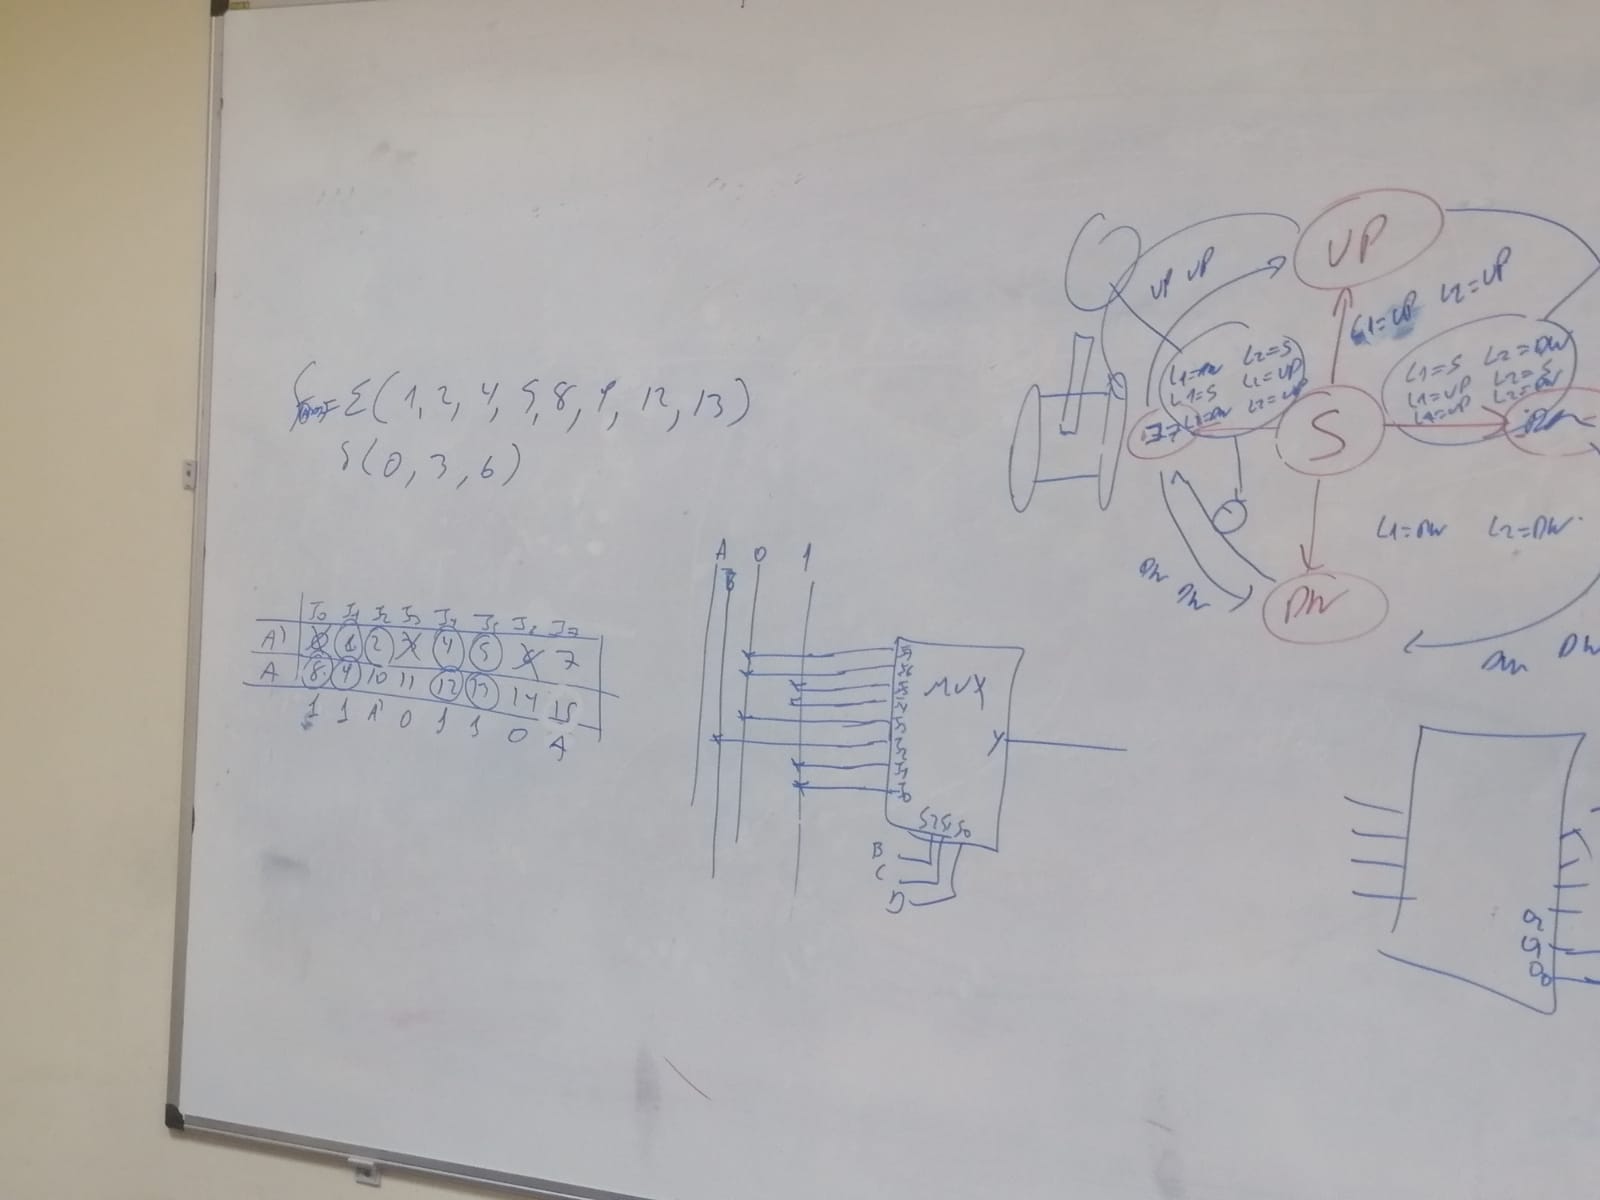 = Σ(1, 2, 4, 5, 8, 9, 12, 13)
δ(0, 3, 6)
I0 I1 I2 I3 I4 I5 I6 I7
A' 0 1 2 3 4 5 6 7
A 8 9 10 11 12 13 14 15
1 1 A' 0 1 1 0 A
A B 0 1
MUX
I7
I6
I5
I4
I3
I2
I1
I0
Y
S2 S1 S0
B
C
D
UP
UP UP
L1=UP L2=UP
L1=DW L2=S
L1=S L2=UP
L1=DW L2=UP
S
L1=S L2=DW
L1=UP L2=S
L1=UP L2=DW
L1=DW L2=DW
DW
DW
DW
DW DW
O2
O1
O0